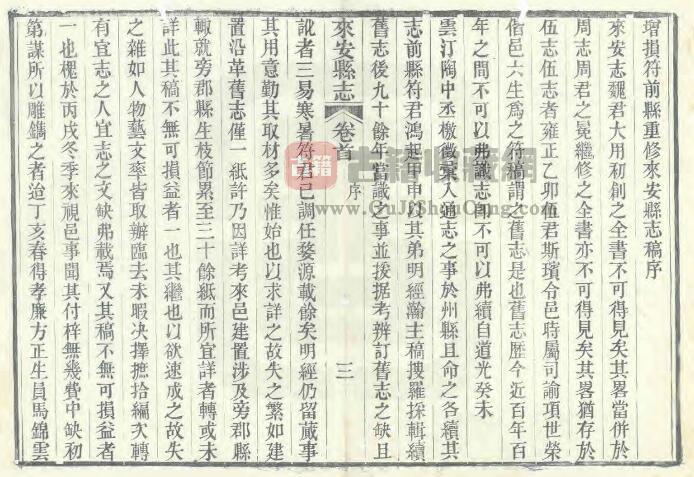 增損符前縣重修來安縣志稿序
來安志魏君大用初創之全書不可得見矣其畧當併於
周志周君之冕繼修之全書亦不可得見矣其畧猶存於
伍志伍志者雍正乙卯伍君斯璸令邑時屬司諭項世榮
偕邑六生爲之符稿謂之舊志是也舊志歷今近百年百
年之間不可以弗識志卽不可以弗續自道光癸未
雲汀陶中丞檄徵彙入通志之事於州縣且命之各續其
志前縣符君鴻起甲申以其弟明經瀚主稿搜羅採輯續
舊志後九十餘年當識之事並援据考辨訂舊志之缺且
來安縣志
卷首
序
三
訛者三易寒暑符君已調任婺源載餘矣明經仍留蕆事
其用意勤其取材多矣惟始也以求詳之故失之繁如建
置沿革舊志僅一紙許乃因詳考來邑建置涉及旁郡縣
輙就旁郡縣生枝節累至三十餘紙而所宜詳者轉或未
詳此其稿不無可損益者一也其繼也以欲速成之故失
之雜如人物藝文率皆取辦臨去未暇决擇摭拾編次轉
有宜志之人宜志之文缺弗載焉又其稿不無可損益者
一也槐於丙戌冬季來視邑事聞其付梓無幾費中缺初
第謀所以雕鐫之者迨丁亥春得孝廉方正生員馬錦雲
古籍
古籍收藏网
www.GuJiShouCang.com